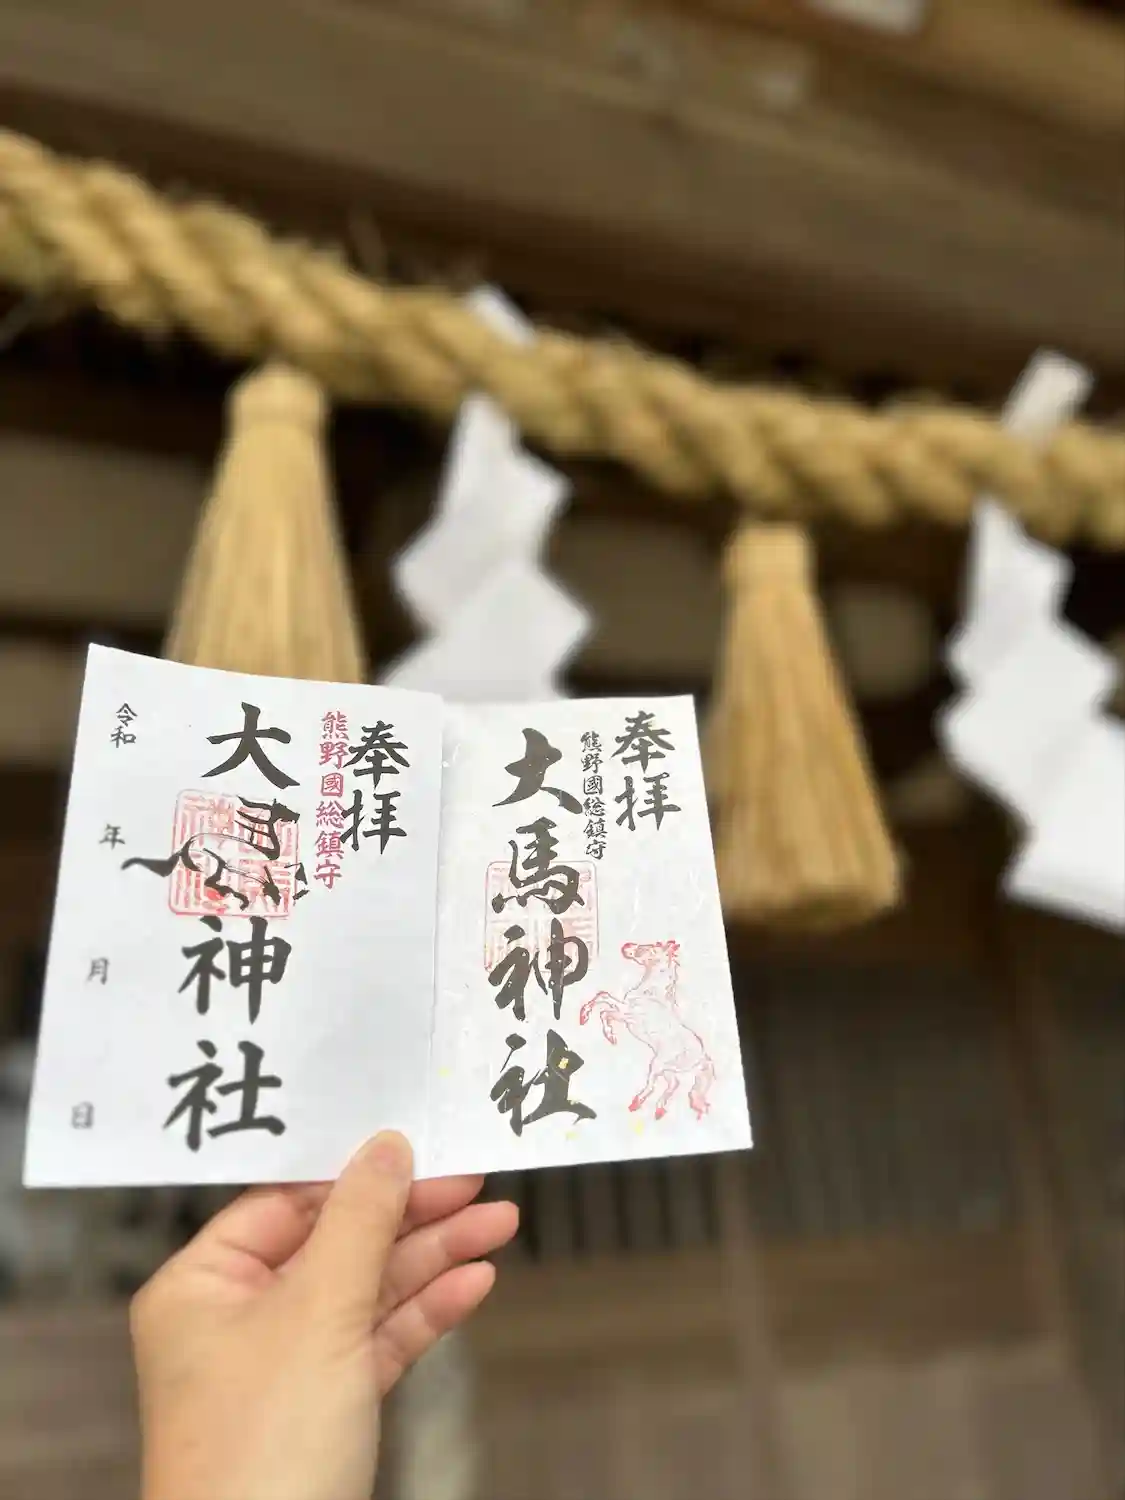 奉拝
熊野國総鎮守
大馬神社
令和 年 月 日
奉拝
熊野國総鎮守
大馬神社